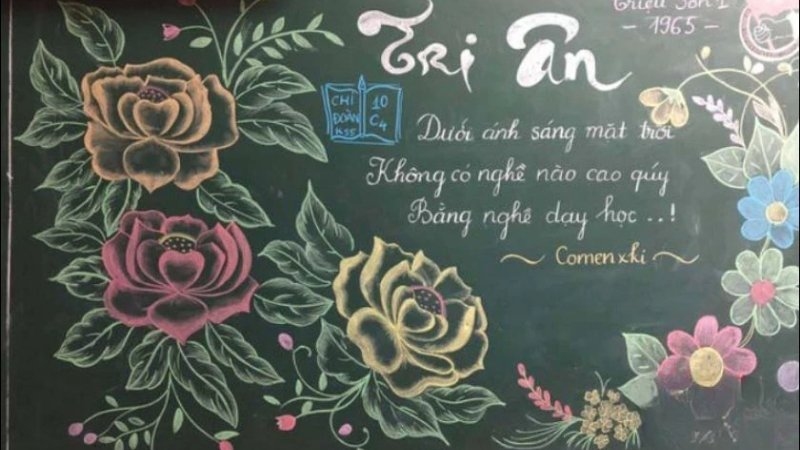 Triệu Sơn 1
- 1965 -
Tri Ân
CHI ĐOÀN K55
10 C4
Dưới ánh sáng mặt trời
Không có nghề nào cao qúy
Bằng nghề dạy học ..!
~ Comenxki ~